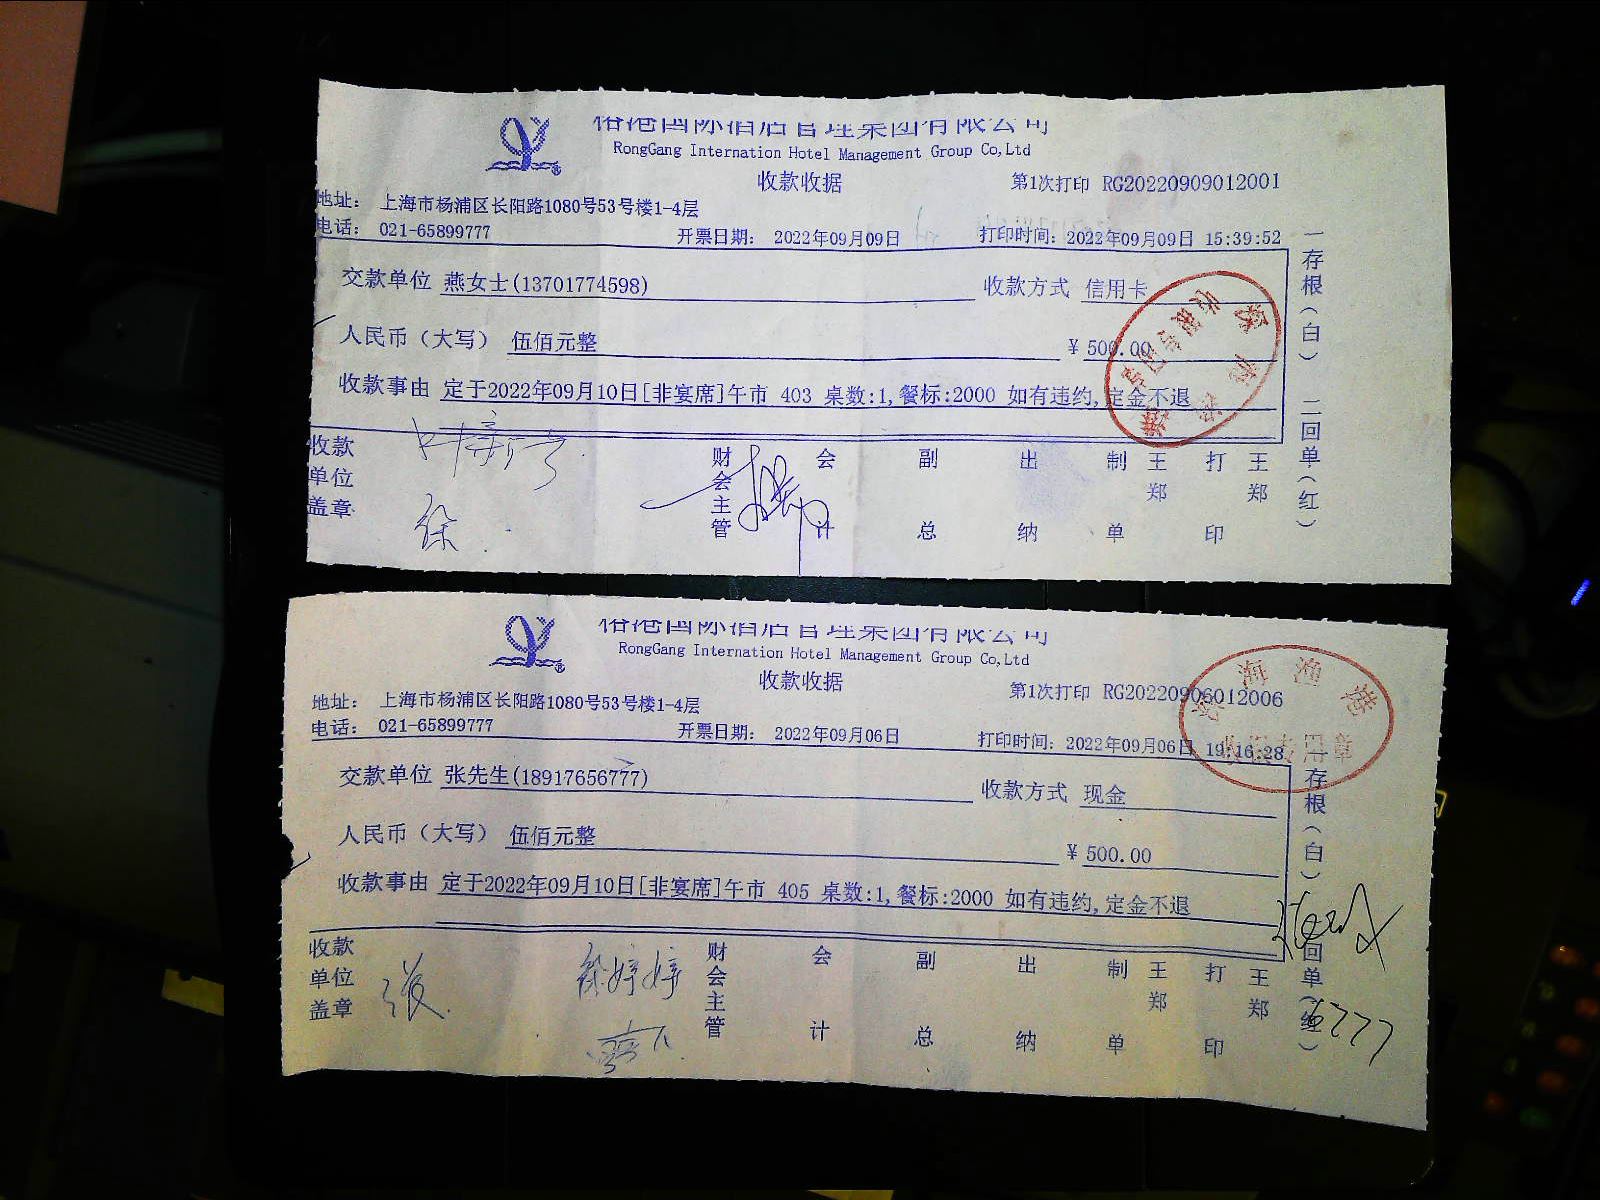 RongGang Internation Hotel Management Group Co,Ltd
收款收据
第1次打印 RG20220909012001
地址： 上海市杨浦区长阳路1080号53号楼1-4层
电话： 021-65899777
开票日期： 2022年09月09日
打印时间：2022年09月09日 15:39:52
交款单位 燕女士(13701774598)
收款方式 信用卡
人民币（大写） 伍佰元整
¥ 500.00
收款事由 定于2022年09月10日[非宴席]午市 403 桌数:1,餐标:2000 如有违约,定金不退
收款单位盖章
徐
财会主管
会计
副总
出纳
制单 王郑
打印 王郑
一存根（白） 二回单（红）
RongGang Internation Hotel Management Group Co,Ltd
收款收据
第1次打印 RG20220906012006
地址： 上海市杨浦区长阳路1080号53号楼1-4层
电话： 021-65899777
开票日期： 2022年09月06日
打印时间：2022年09月06日 19:16:28
交款单位 张先生(18917656777)
收款方式 现金
人民币（大写） 伍佰元整
¥ 500.00
收款事由 定于2022年09月10日[非宴席]午市 405 桌数:1,餐标:2000 如有违约,定金不退
收款单位盖章
张
徐婷婷
财会主管
会计
副总
出纳
制单 王郑
打印 王郑
存根（白） 回单（红）